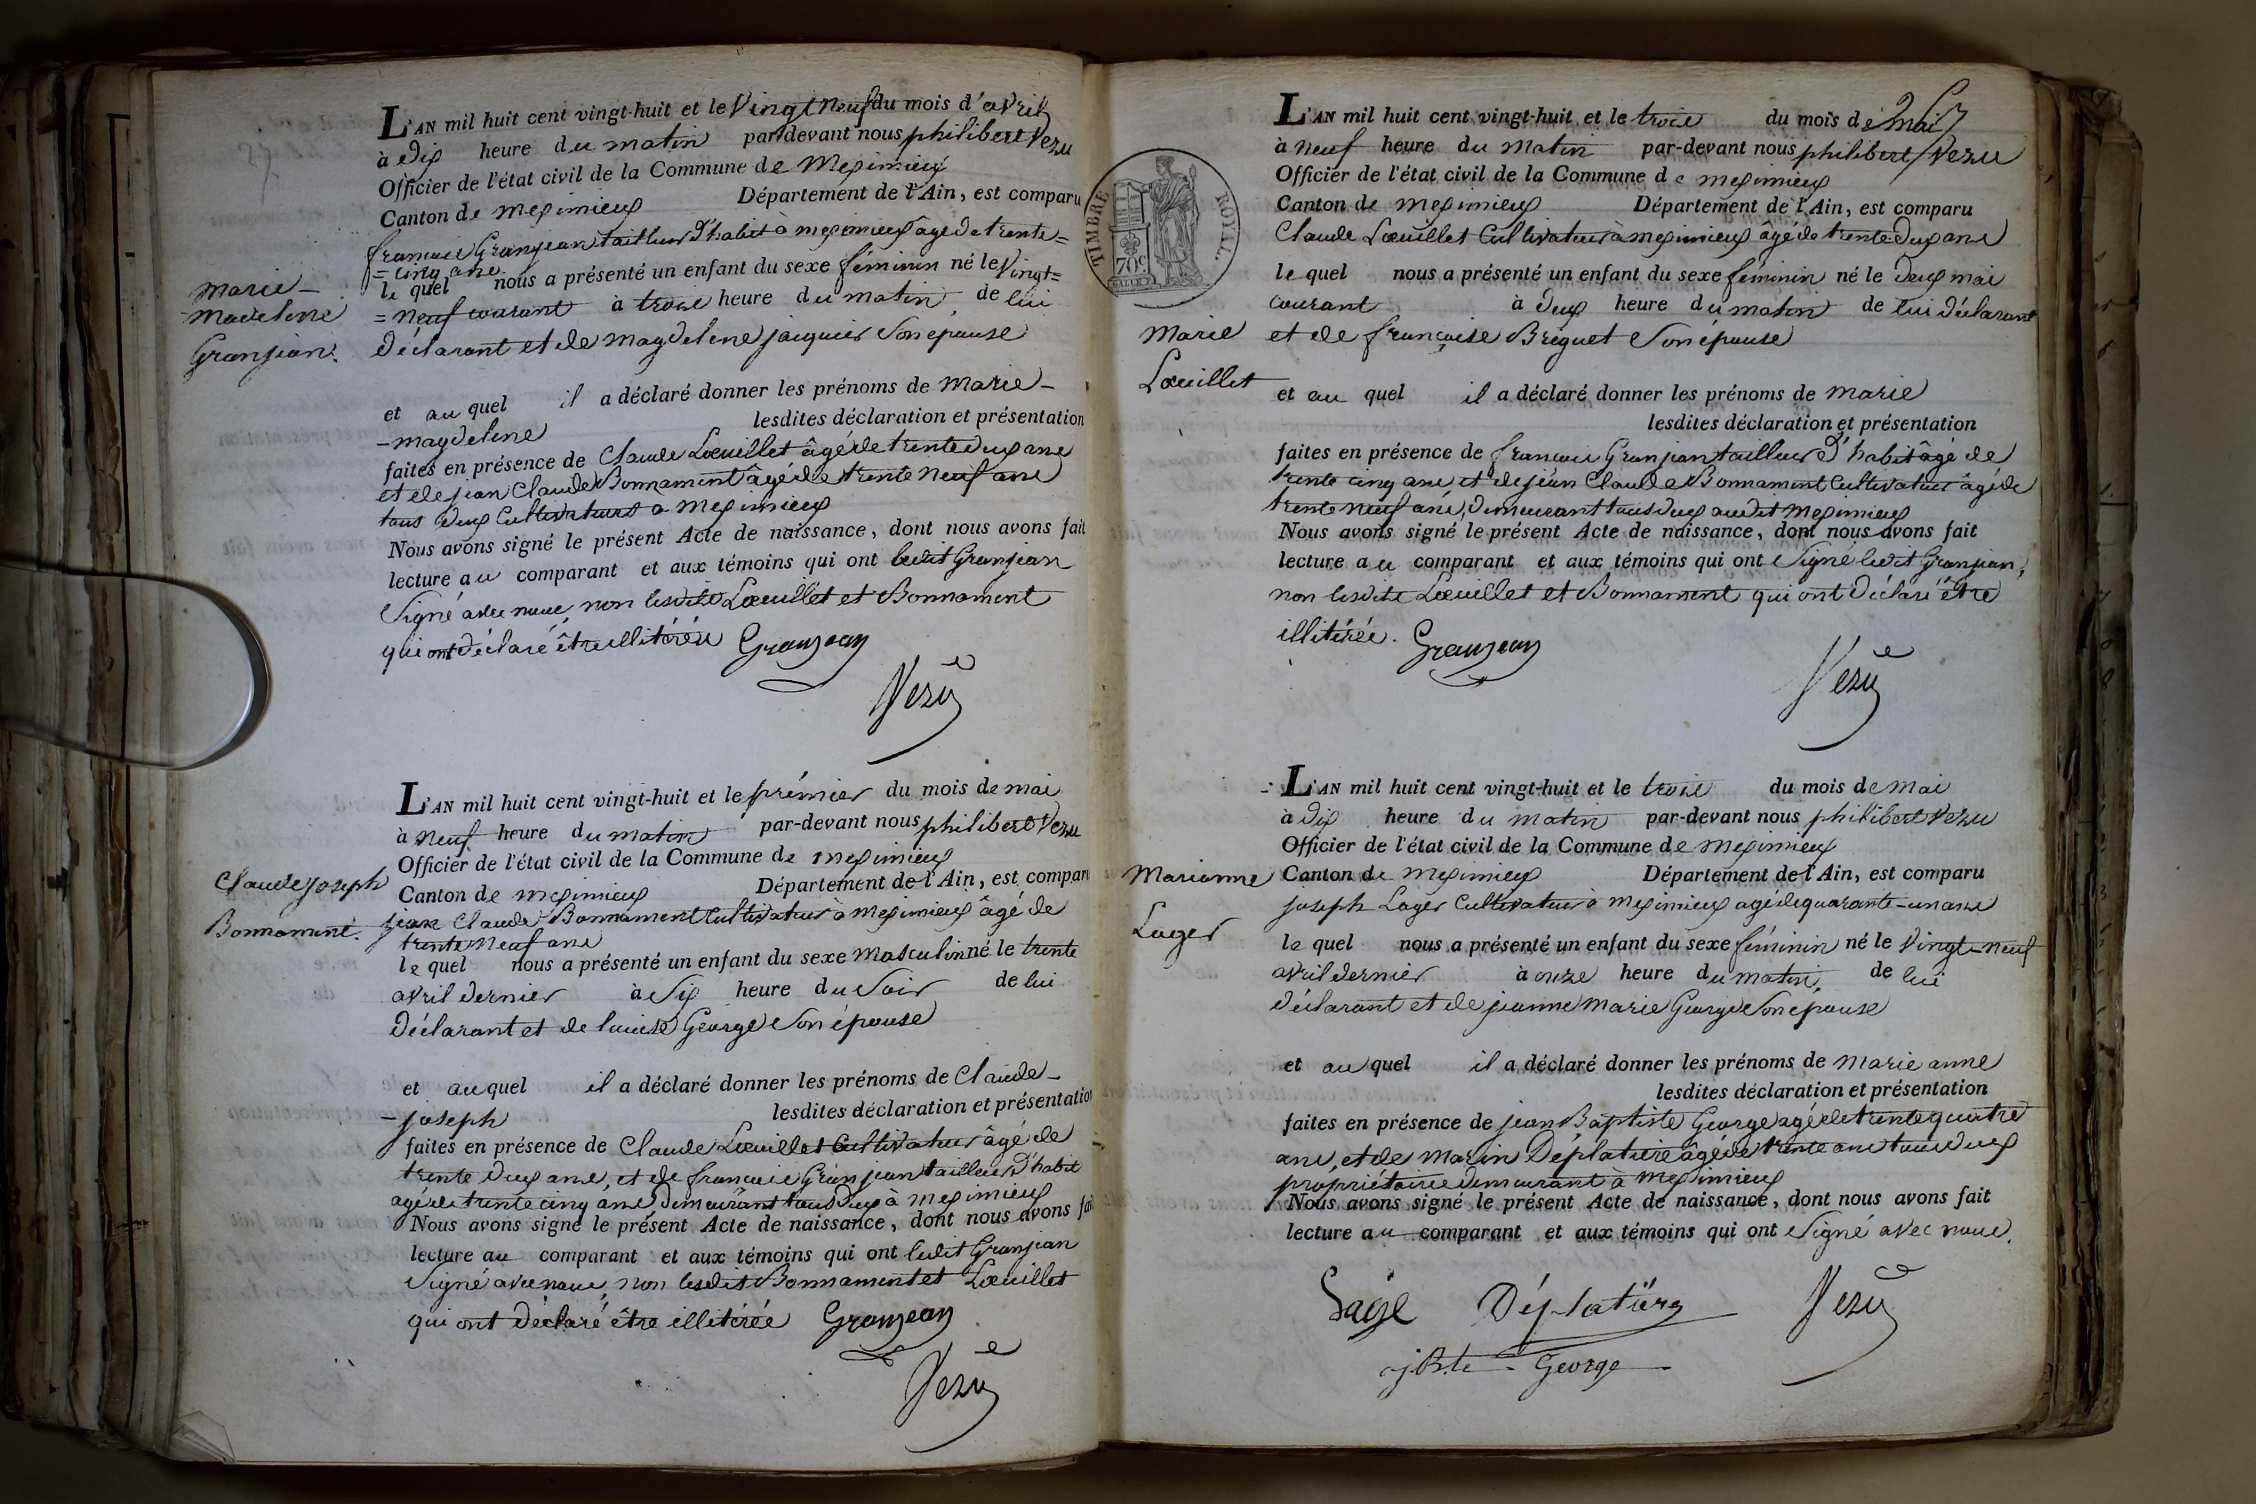 L'AN mil huit cent vingt-huit et le Vingt neuf du mois d'avril
à dix heure du matin par-devant nous philibert Vezu
Officier de l'état civil de la Commune de Meximieux
Canton de meximieux Département de l'Ain, est comparu
francois Granjean tailleur d'habit à meximieux âgé de trente=
= cinq ans
le quel nous a présenté un enfant du sexe féminin né le Vingt=
= neuf courant à trois heure du matin de lui
déclarant et de magdelene jacquier Son épouse
marie-
-madelene
Granjean.
et au quel il a déclaré donner les prénoms de marie-
-magdelene lesdites déclaration et présentation
faites en présence de Claude Lœuillet âgé de trente deux ans
et de jean Claude Bonnament âgé de trente neuf ans
tous deux Cultivateurs a meximieux
Nous avons signé le présent Acte de naissance, dont nous avons fait
lecture au comparant et aux témoins qui ont ledit Granjean
Signé avec nous, non lesdits Lœuillet et Bonnament
qui ont déclaré être illitérés Granjean
Vezu
L'AN mil huit cent vingt-huit et le prémier du mois de mai
à neuf heure du matin par-devant nous philibert Vezu
Officier de l'état civil de la Commune de meximieux
Canton de meximieux Département de l'Ain, est compar
Claude joseph
Bonnament.
jean Claude Bonnament Cultivateur à meximieux âgé de
trente neuf ans
le quel nous a présenté un enfant du sexe masculin né le trente
avril dernier à Six heure du Soir de lui
déclarant et de louise George Son épouse
et au quel il a déclaré donner les prénoms de Claude-
-joseph lesdites déclaration et présentation
faites en présence de Claude Lœuillet Cultivateur âgé de
trente deux ans, et de francois Granjean tailleur d'habit
agé de trente cinq ans demeurant tous deux à meximieux
Nous avons signé le présent Acte de naissance, dont nous avons fai
lecture au comparant et aux témoins qui ont ledit Granjean
Signé avec nous, non lesdit Bonnament et Lœuillet
qui ont déclaré être illitérés Granjean
Vezu
L'AN mil huit cent vingt-huit et le trois du mois de mai
à neuf heure du matin par-devant nous philibert Vezu
Officier de l'état civil de la Commune de meximieux
Canton de meximieux Département de l'Ain, est comparu
Claude Lœuillet Cultivateur à meximieux âgé de trente deux ans
TIMBRE ROYAL.
70c
le quel nous a présenté un enfant du sexe féminin né le deux mai
courant à deux heure du matin de lui déclarant
et de françoise Bréguet Son épouse
Marie
Lœuillet
et au quel il a déclaré donner les prénoms de marie
lesdites déclaration et présentation
faites en présence de francois Granjean tailleur d'habit âgé de
trente cinq ans et de jean Claude Bonnament Cultivateur âgé de
trente neuf ans, demeurant tous deux audit meximieux
Nous avons signé le présent Acte de naissance, dont nous avons fait
lecture au comparant et aux témoins qui ont Signé ledit Granjean,
non lesdits Lœuillet et Bonnament qui ont déclaré être
illitérés. Granjean
Vezu
L'AN mil huit cent vingt-huit et le trois du mois de mai
à dix heure du matin par-devant nous philibert Vezu
Officier de l'état civil de la Commune de meximieux
Canton de meximieux Département de l'Ain, est comparu
Marianne
Lager
joseph Lager Cultivateur à meximieux agé de quarante-un ans
le quel nous a présenté un enfant du sexe féminin né le Vingt-neuf
avril dernier à onze heure du matin, de lui
déclarant et de jeanne marie George Son épouse
et au quel il a déclaré donner les prénoms de marie anne
lesdites déclaration et présentation
faites en présence de jean Baptiste George agé de trente quatre
ans, et de marin Déplatière âgé de trente ans tous deux
propriétaires demeurant à meximieux
Nous avons signé le présent Acte de naissance, dont nous avons fait
lecture au comparant et aux témoins qui ont Signé avec nous.
Déplatière Vezu
jBte George